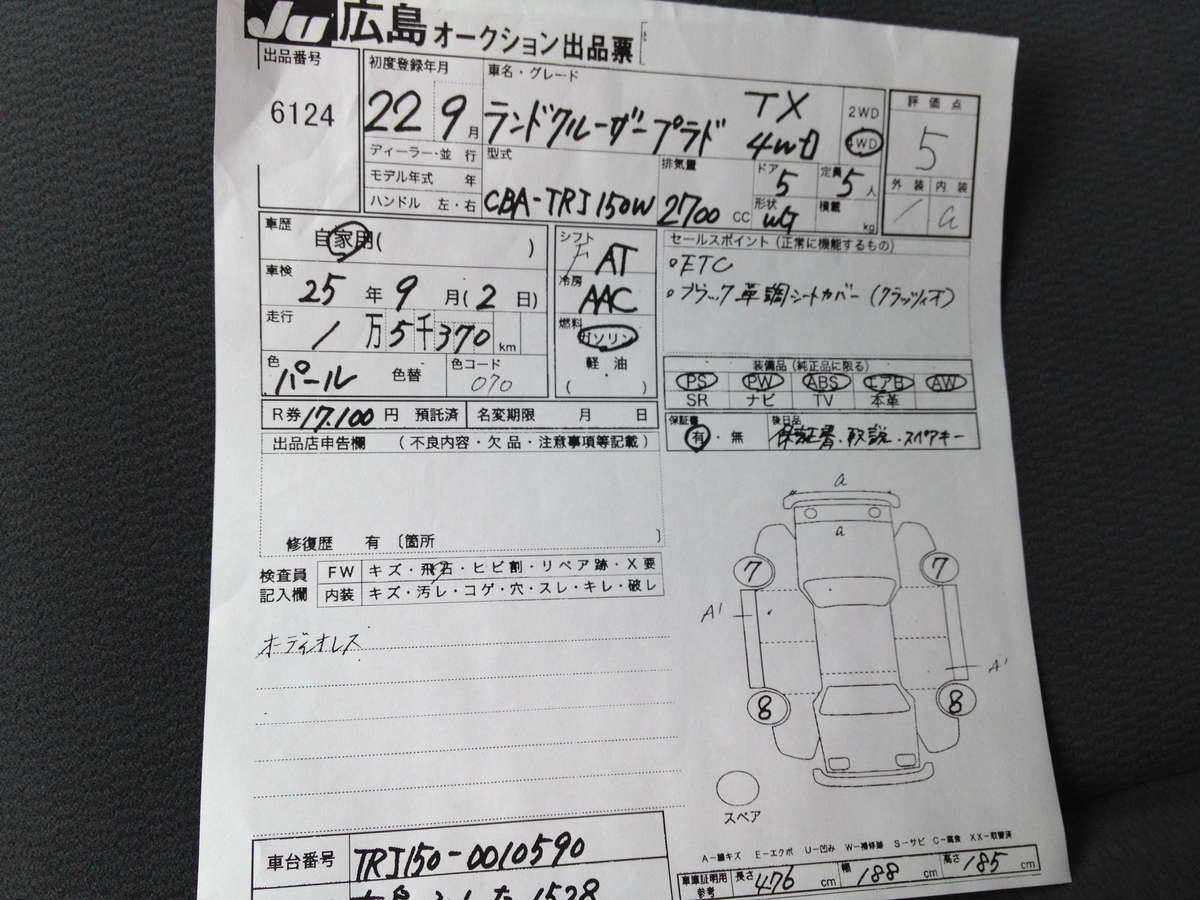 JU 広島 オークション出品票
出品番号 初度登録年月 車名・グレード
6124 22 9月 ランドクルーザープラド TX 4WD 2WD 4WD
評価点
5
外装 内装
1 a
ディーラー・並行 型式 排気量 ドア 5 定員 5人
モデル年式 年
ハンドル 左・右 CBA-TRJ150W 2700 CC 形状 WG 積載 kg
車歴 自家用( )
車検 25年 9月(2日)
走行 1万5千370km
色 パール 色替 色コード 070
シフト F AT
冷房 AAC
燃料 ガソリン
軽油
( )
セールスポイント(正常に機能するもの)
○ETC
○ブラック革調シートカバー(クラッツィオ)
装備品(純正品に限る)
PS PW ABS エアB AW
SR ナビ TV 本革
R券 17,100円 預託済 名変期限 月 日
保証書 有・無 後日品 保証書、取説・スペアキー
出品店申告欄 (不良内容・欠品・注意事項等記載)
修復歴 有 〔箇所 )
検査員記入欄
FW キズ・飛石・ヒビ割・リペア跡・X要
内装 キズ・汚レ・コゲ・穴・スレ・キレ・破レ
オーディオレス
a
a
7 7
A1
A1
8 8
スペア
A-線キズ E-エクボ U-凹み W-補修跡 S-サビ C-腐食 XX-取替済
車台番号 TRJ150-0010590
車庫証明用参考 長さ 476 cm 幅 188 cm 高さ 185 cm
1528